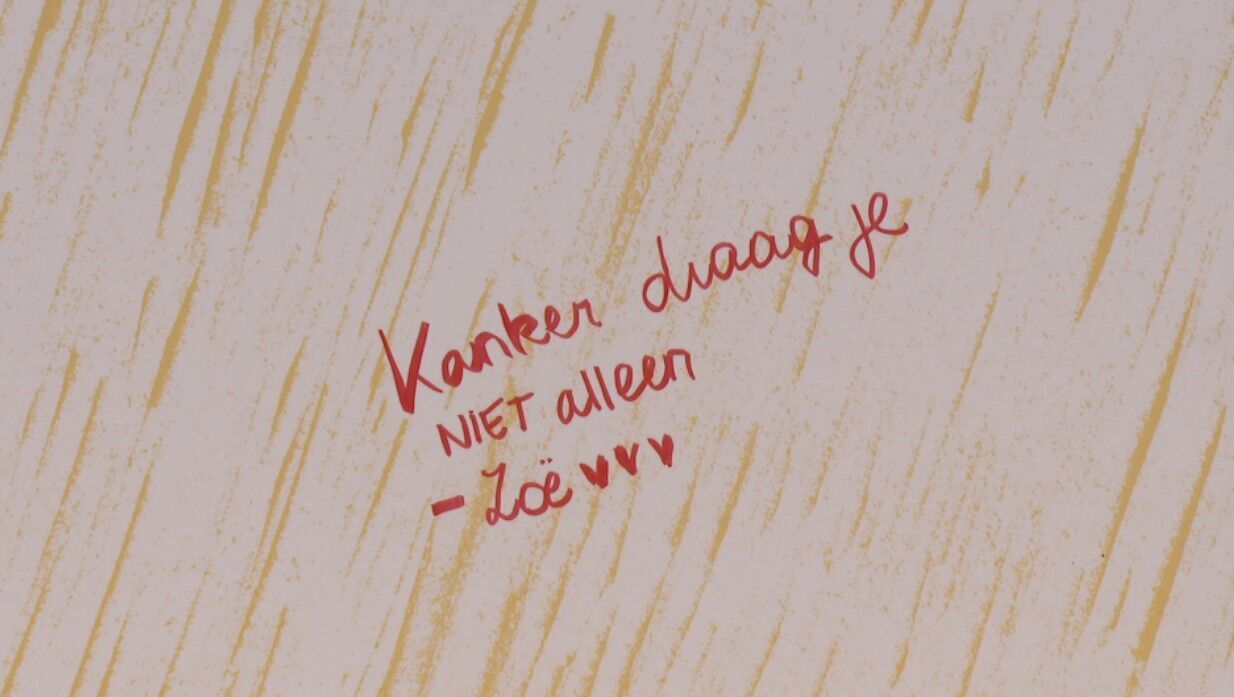 Kanker draag je
NIET alleen
- Zoë ♥♥♥